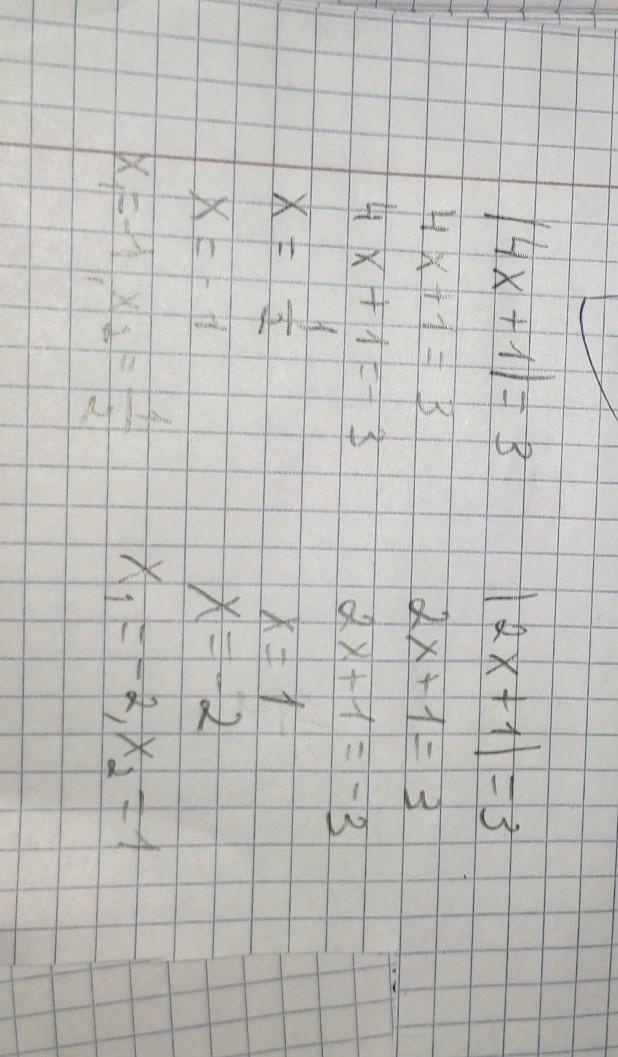 |4x+1|=3
4x+1=3
4x+1=-3
x=1/2
x=-1
x₁=-1, x₂=1/2
|2x+1|=3
2x+1=3
2x+1=-3
x=1
x=-2
x₁=-2, x₂=1